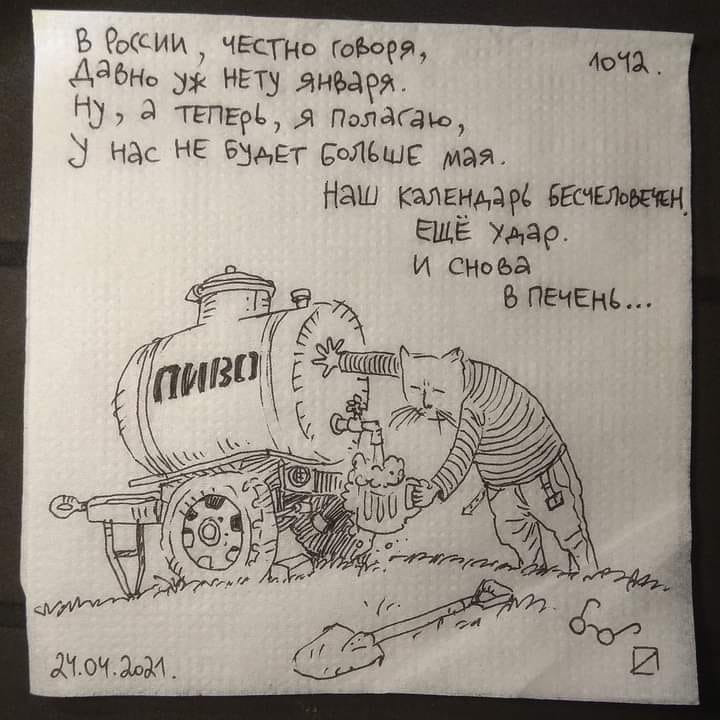 В России, честно говоря,
1042.
Давно уж нету января.
Ну, а теперь, я полагаю,
У нас не будет больше мая.
Наш календарь бесчеловечен.
Ещё удар.
И снова
в печень...
ПИВО
24.04.2021.